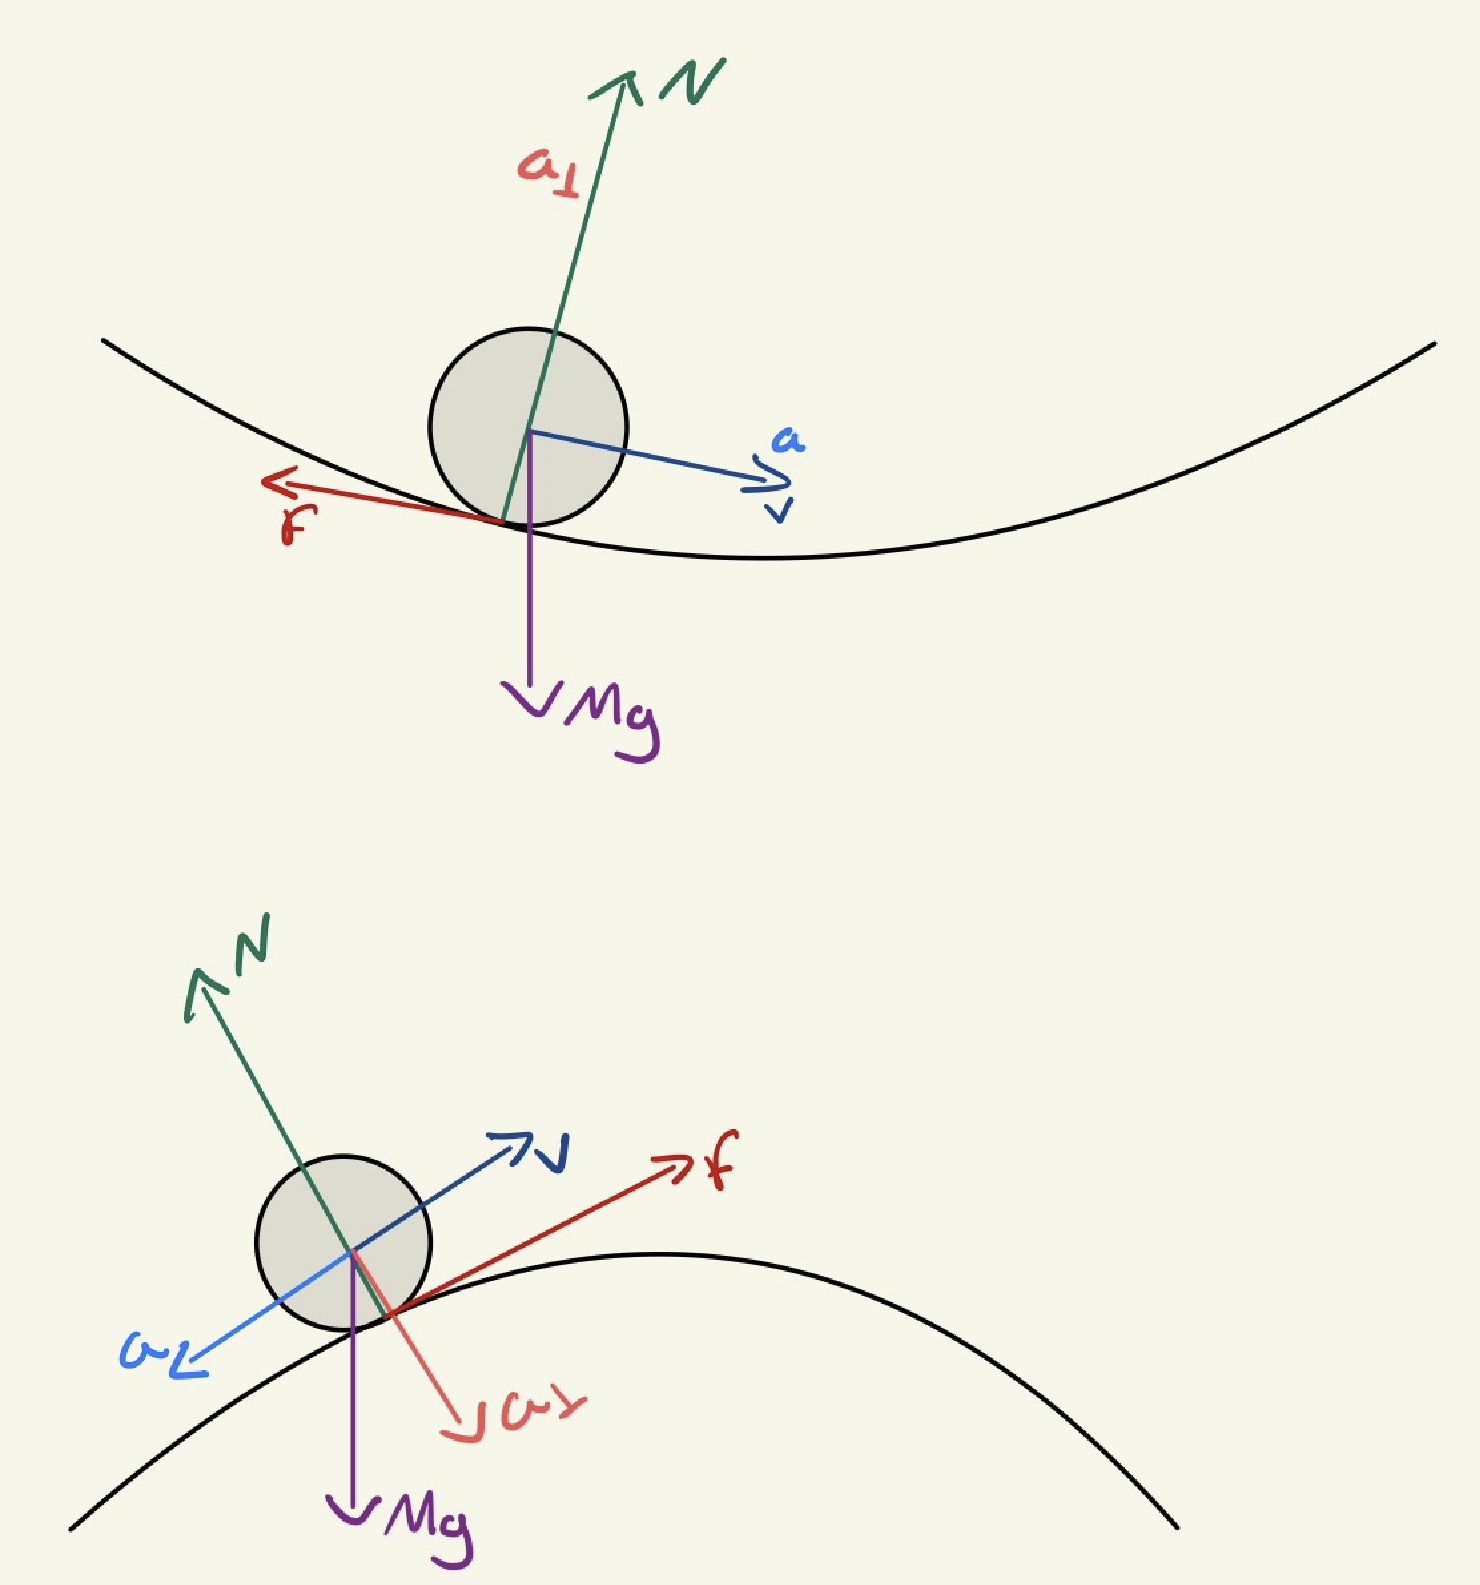 N
a⊥
a
v
f
Mg
N
v
f
a
a⊥
Mg